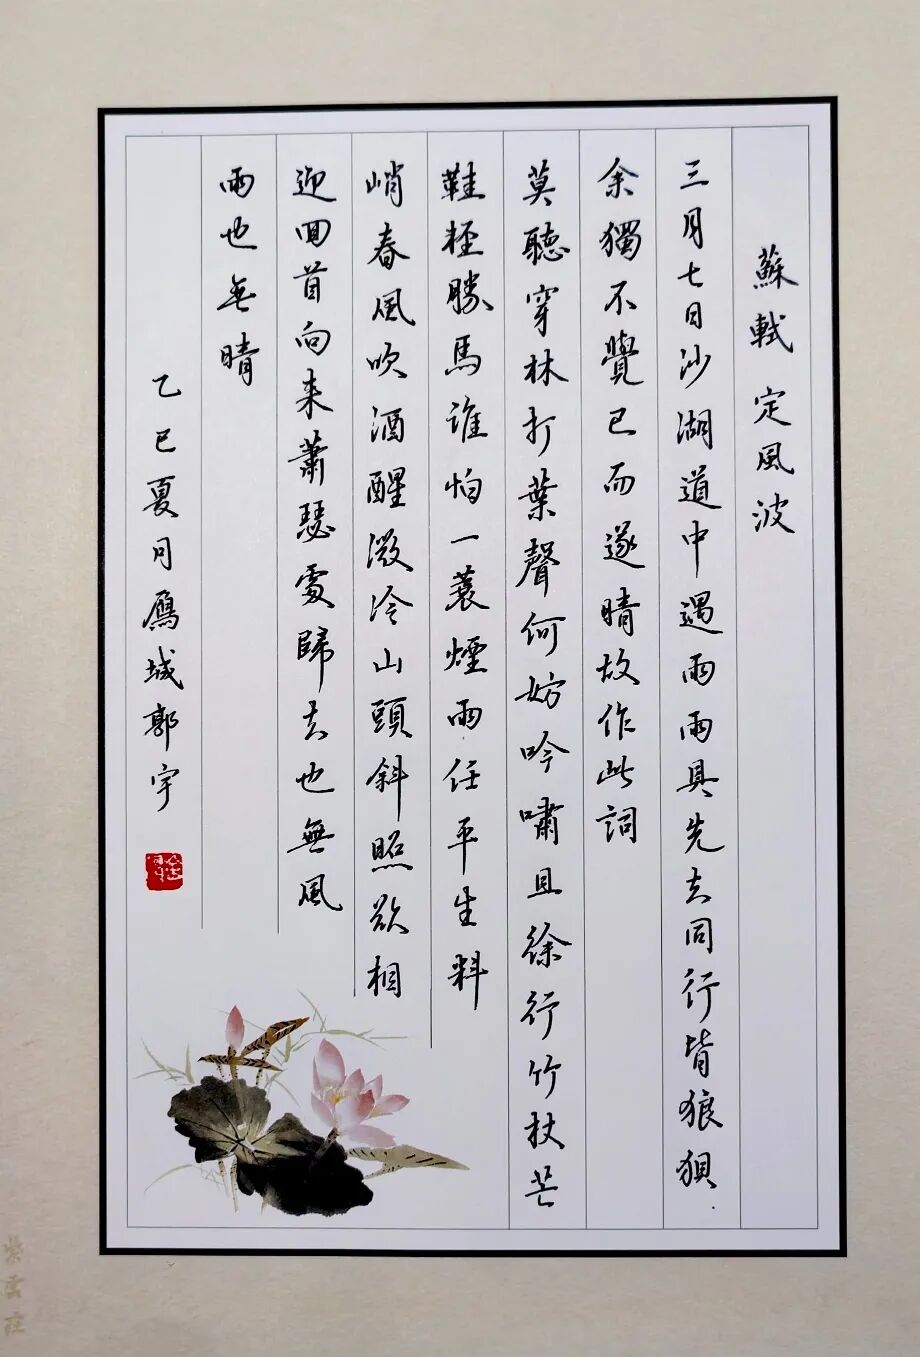 蘇軾 定風波
三月七日沙湖道中遇雨雨具先去同行皆狼狽
余獨不覺已而遂晴故作此詞
莫聽穿林打葉聲何妨吟嘯且徐行竹杖芒
鞋輕勝馬谁怕一蓑煙雨任平生料
峭春風吹酒醒微冷山頭斜照欲相
迎回首向来蕭瑟處歸去也無風
雨也無晴
乙巳夏月鷹城郭宇